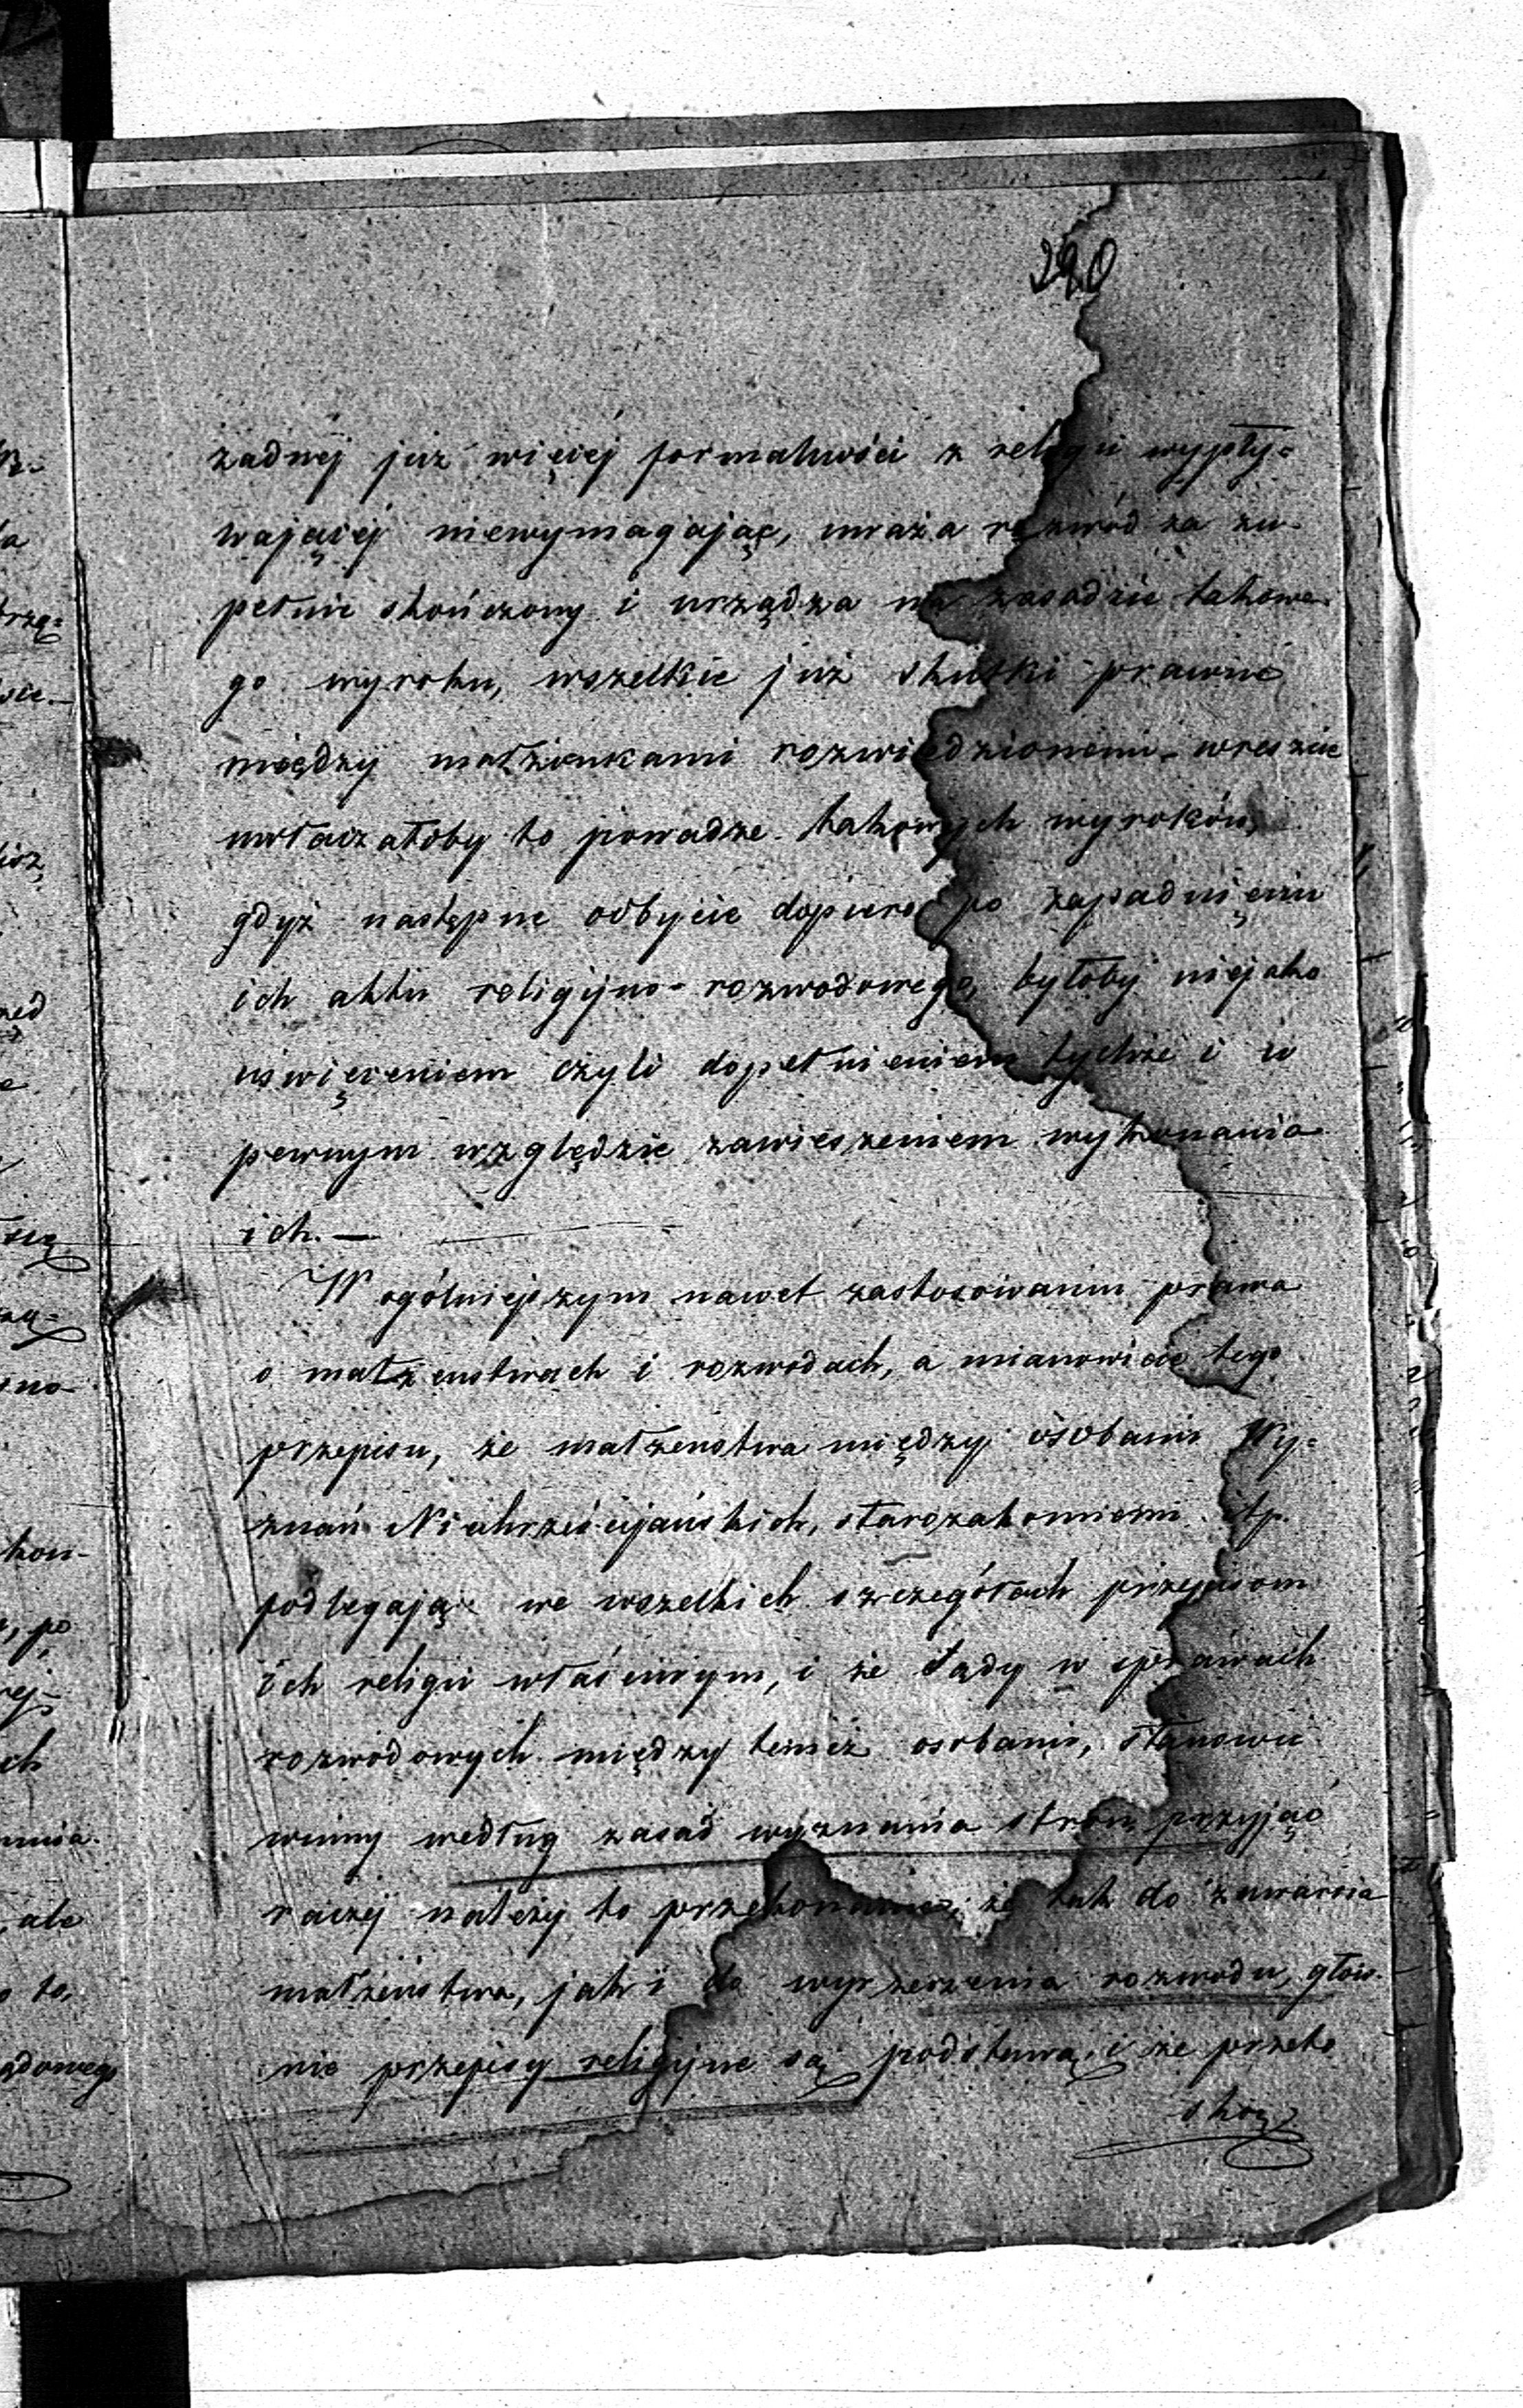 290
żadnéj już więcéj formalności z religii wypły=
wającéj niewymagając, uważa rozwód za zu-
pełnie skończony i urządza na zasadzie takowe-
go wyroku, wszelkie już skutki prawne
między małżonkami rozwiedzionemi - wreszcie
uwłaczałoby to powadze takowych wyroków,
gdyż następne odbycie dopiero po zapadnięciu
ich aktu religijno-rozwodowego, byłoby niejako
uświęceniem czyli dopełnieniem tychże i w
pewnym względzie zawieszeniem wykonania
ich. —
W ogólniejszym nawet zastosowaniu prawa
o małżenstwach i rozwodach, a mianowicie tego
przepisu, że małżenstwa między osobami Wy=
znań Niechrześcijańskich, starozakonnemi itp.
podlegają we wszelkich szczegółach przepisom
ich religii właściwym, i że Sądy w sprawach
rozwodowych między temiż osobami, stanowić
winny według zasad wyznania stron, przyjąć
raczéj należy to przekonanie, że tak do zawarcia
małżeństwa, jak i do wyrzeczenia rozwodu, głów-
nie przepisy religijne są podstawą i że przeto